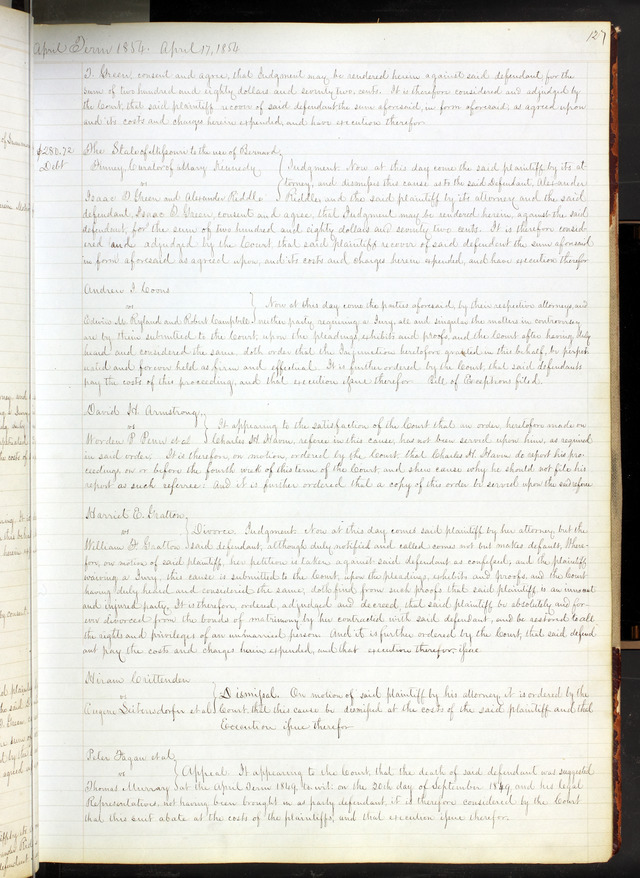 127
April Term 1854. April 17, 1854
D. Green, consent and agree, that Judgment may be rendered herein against said defendant, for the
sum of two hundred and eighty dollars and seventy two cents. It is therefore considered and adjudged by
the Court, that said plaintiff recover of said defendant the sum aforesaid, in form aforesaid, as agreed upon
and its costs and charges herein expended, and have execution therefor.
$280.72
Debt
The State of Missouri to the use of Bernard
Penney, Curator of Mary Kennedy
vs
Isaac D. Green and Alexander Riddle
Judgment. Now at this day come the said plaintiff by its at-
torney, and dismisses this cause as to the said defendant, Alexander
Riddle, and the said plaintiff by its attorney and the said
defendant, Isaac D. Green, consent and agree, that Judgment may be rendered herein, against the said
defendant, for the sum of two hundred and eighty dollars and seventy two cents. It is therefore consid-
ered and adjudged by the Court that said plaintiff recover of said defendant the sum aforesaid
in form aforesaid as agreed upon, and its costs and charges herein expended, and have execution therefor
Andrew J. Coons
vs
Edwin M. Ryland and Robert Campbell
Now at this day come the parties aforesaid, by their respective attorneys, and
neither party requiring a Jury, all and singular the matters in controversy
are by them submitted to the Court, upon the pleadings, exhibits and proofs, and the Court after having duly
heard and considered the same, doth order that the Injunction heretofore granted in this behalf, be perpet-
uated and forever held as firm and effectual. It is further ordered by the Court, that said defendants
pay the costs of this proceeding, and that execution issue therefor. Bill of Exceptions filed.
David H. Armstrong
vs
Worden P. Penn et al
It appearing to the satisfaction of the Court that an order, heretofore made on
Charles H. Haven, referee in this cause, has not been served upon him, as required
in said order. It is therefore, on motion, ordered by the Court, that Charles H. Haven do report his pro-
ceedings on or before the fourth week of this term of the Court, and shew cause why he should not file his
report as such referee. And it is further ordered that a copy of this order be served upon the said referee
Harriet E. Gratton
vs
William F. Gratton
Divorce: Judgment. Now at this day comes said plaintiff by her attorney, but the
said defendant, although duly notified and called comes not but makes default, Where-
fore, on motion of said plaintiff, her petition is taken against said defendant as confessed, and the plaintiff
waiving a Jury, this cause is submitted to the Court, upon the pleadings, exhibits and proofs, and the Court
having duly heard and considered the same, doth find from such proofs that said plaintiff is an innocent
and injured party. It is therefore, ordered, adjudged and decreed, that said plaintiff be absolutely and for-
ever divorced from the bonds of matrimony by her contracted with said defendant, and be restored to all
the rights and privileges of an unmarried person. And it is further ordered by the Court, that said defend
ant pay the costs and charges herein expended, and that execution therefor issue
Hiram Crittenden
vs
Eugene Leitensdorfer et al
Dismissal. On motion of said plaintiff by his attorney it is ordered by the
Court, that this cause be dismissed at the costs of the said plaintiff and that
Execution issue therefor
Peter Fagan et al,
vs
Thomas Murray
Appeal. It appearing to the Court, that the death of said defendant was suggested
at the April Term 1849, to wit: on the 20th day of September 1849, and his legal
Representatives, not having been brought in as party defendant, it is therefore considered by the Court
that this suit abate at the costs of the plaintiffs, and that execution issue therefor.